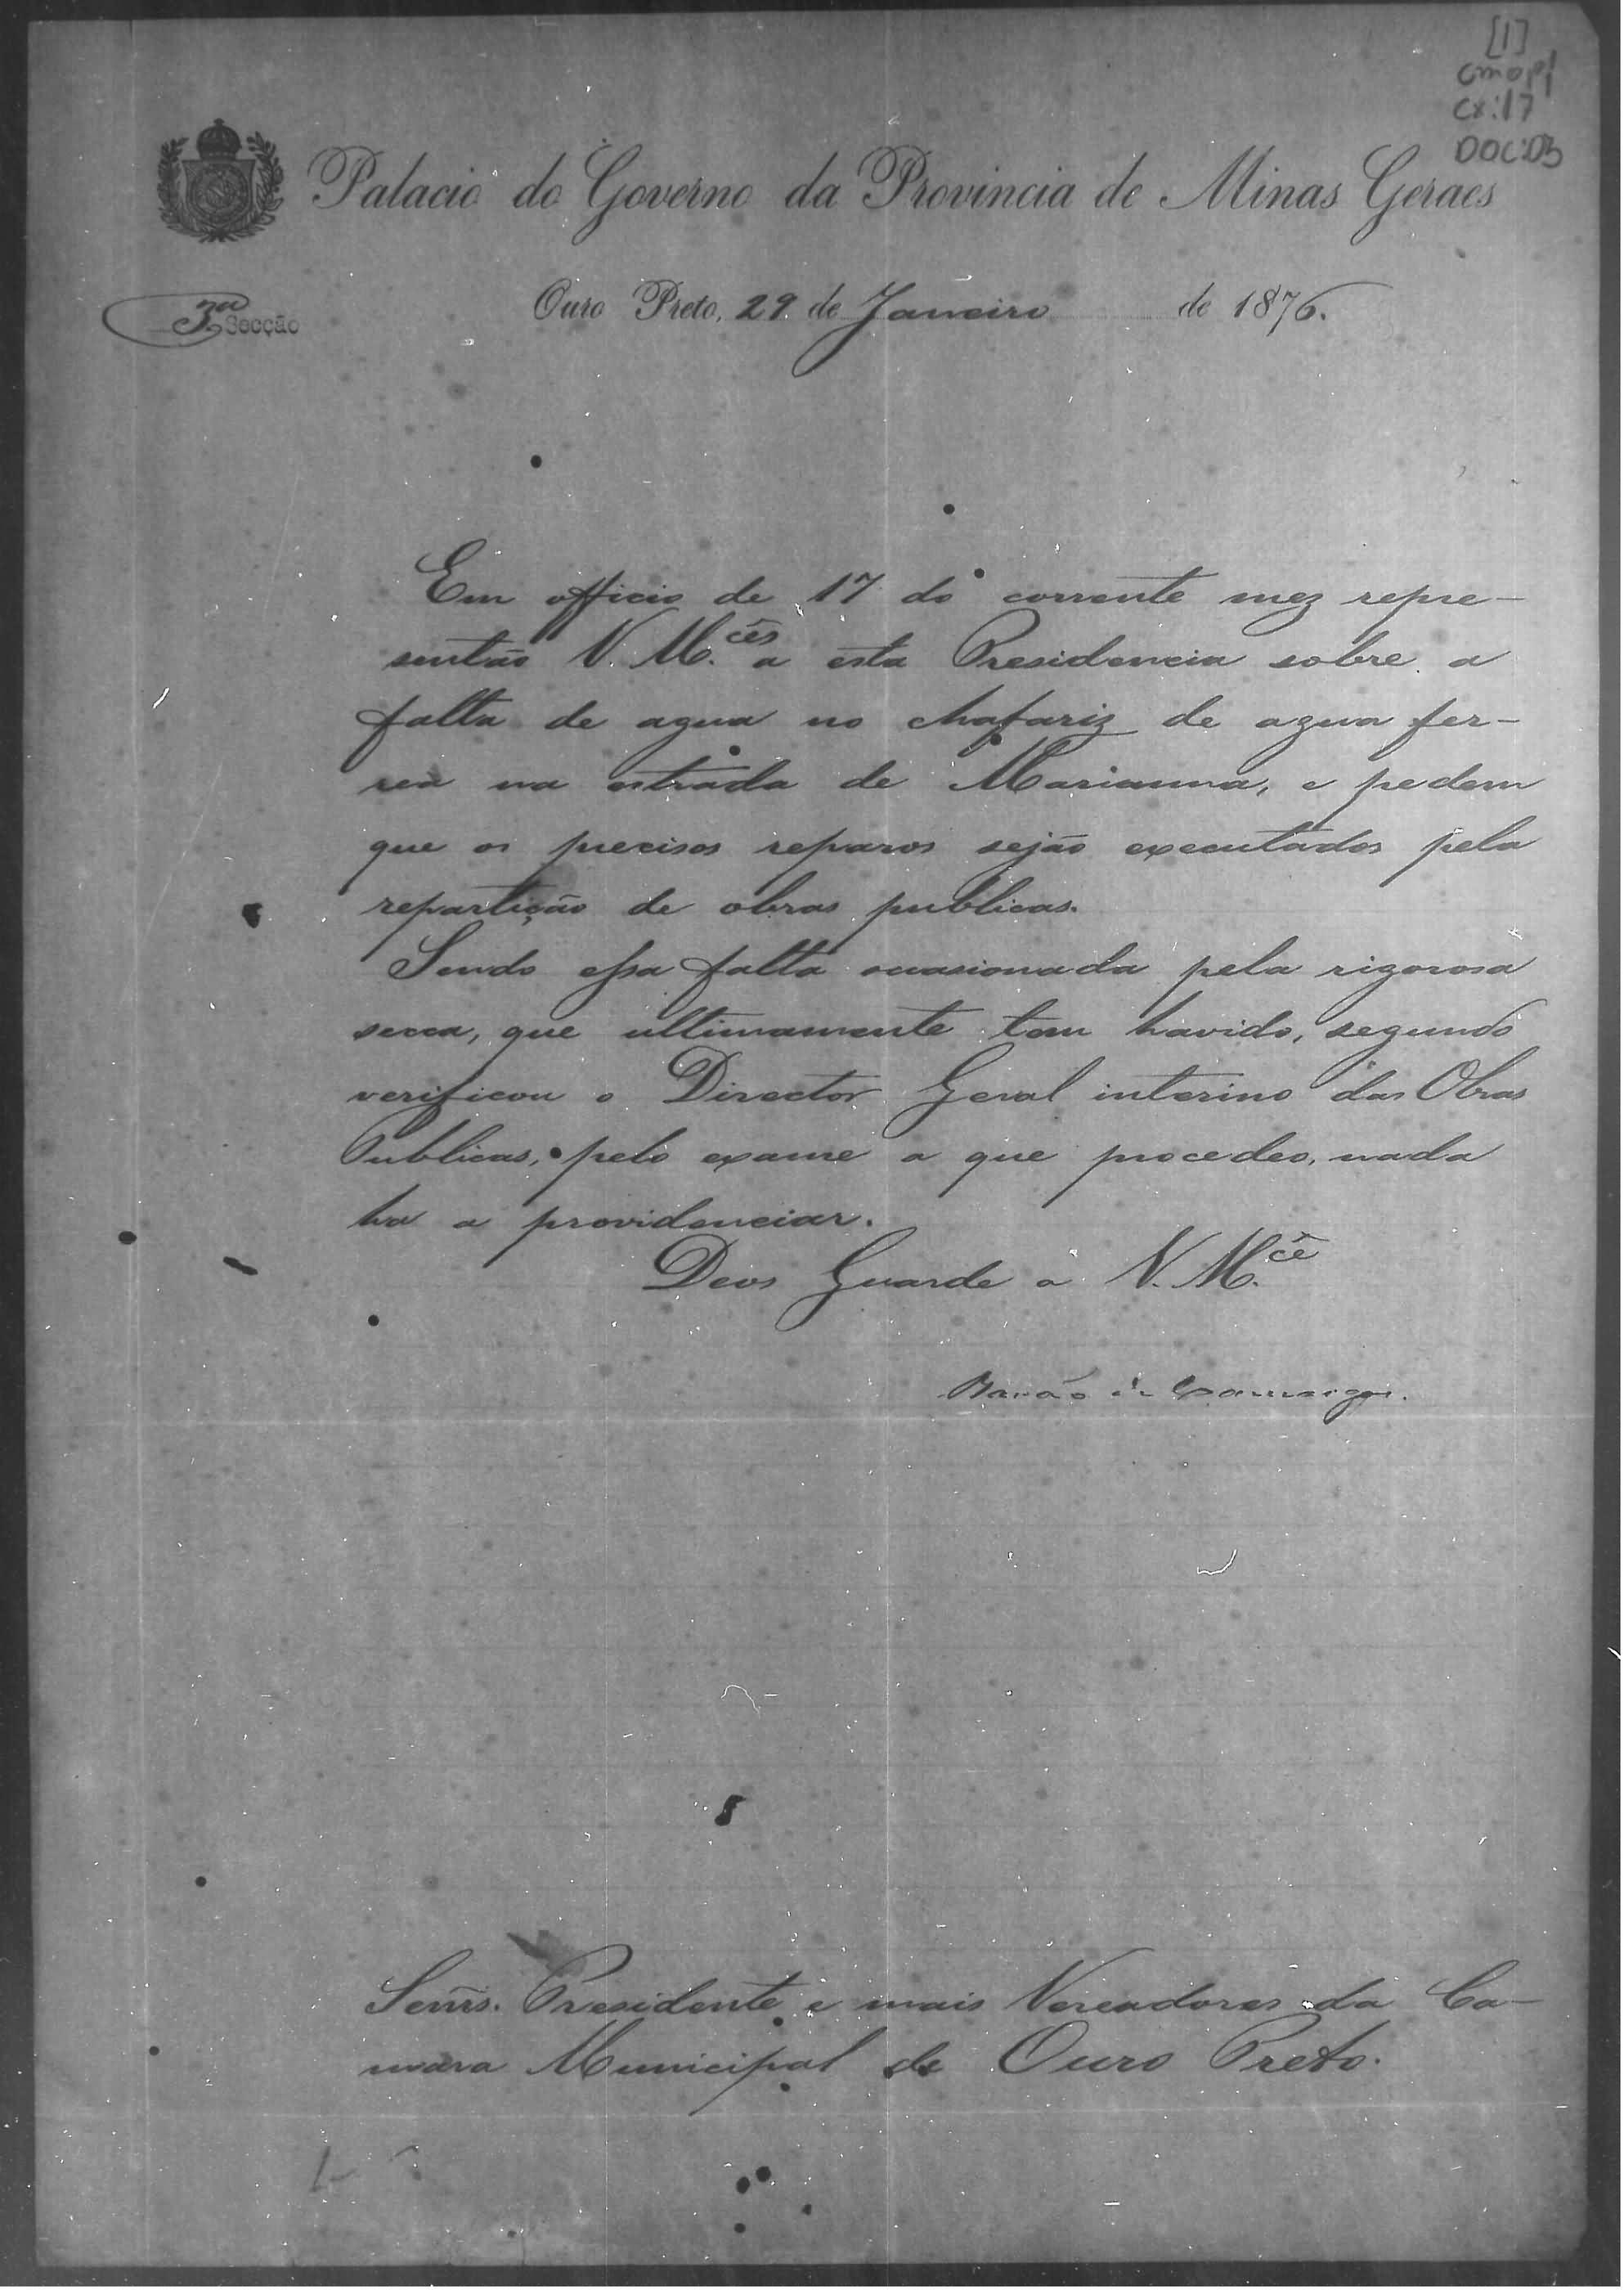 [1]
CMOP
CX:17
DOC:03
Palacio do Governo da Provincia de Minas Geraes
3ª Secção
Ouro Preto, 29 de Janeiro de 1876.
Em officio de 17 do corrente mez repre-
sentão V. M.cês a esta Presidencia sobre a
falta de agua no chafariz de agua fer-
rea na estrada de Marianna, e pedem
que os precisos reparos sejão executados pela
repartição de obras publicas.
Sendo essa falta occasionada pela rigorosa
secca, que ultimamente tem havido, segundo
verificou o Director Geral interino das Obras
Publicas, pelo exame a que procedeo, nada
ha a providenciar.
Deos Guarde a V. M.cê
Barão de Camargos.
Senrs. Presidente e mais Vereadores da Ca-
mara Municipal de Ouro Preto.